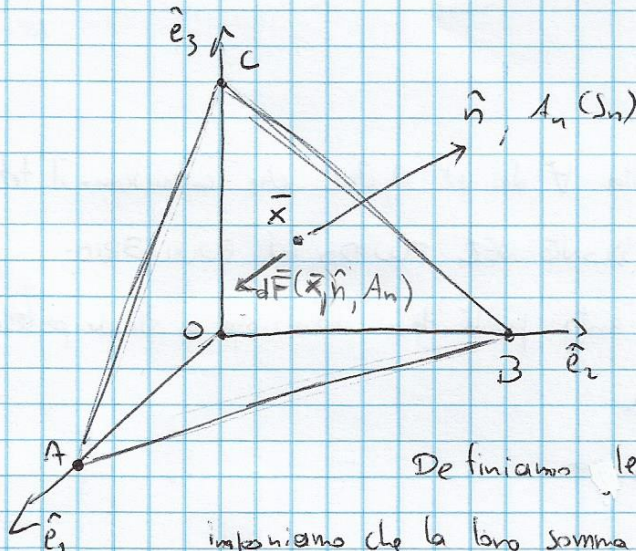 ê₃
C
n̂, Aₙ(Sₙ)
x̄
dF̄(x̄,n̂,Aₙ)
O
B
ê₂
A
Definiamo le
ê₁
imponiamo che la loro somma